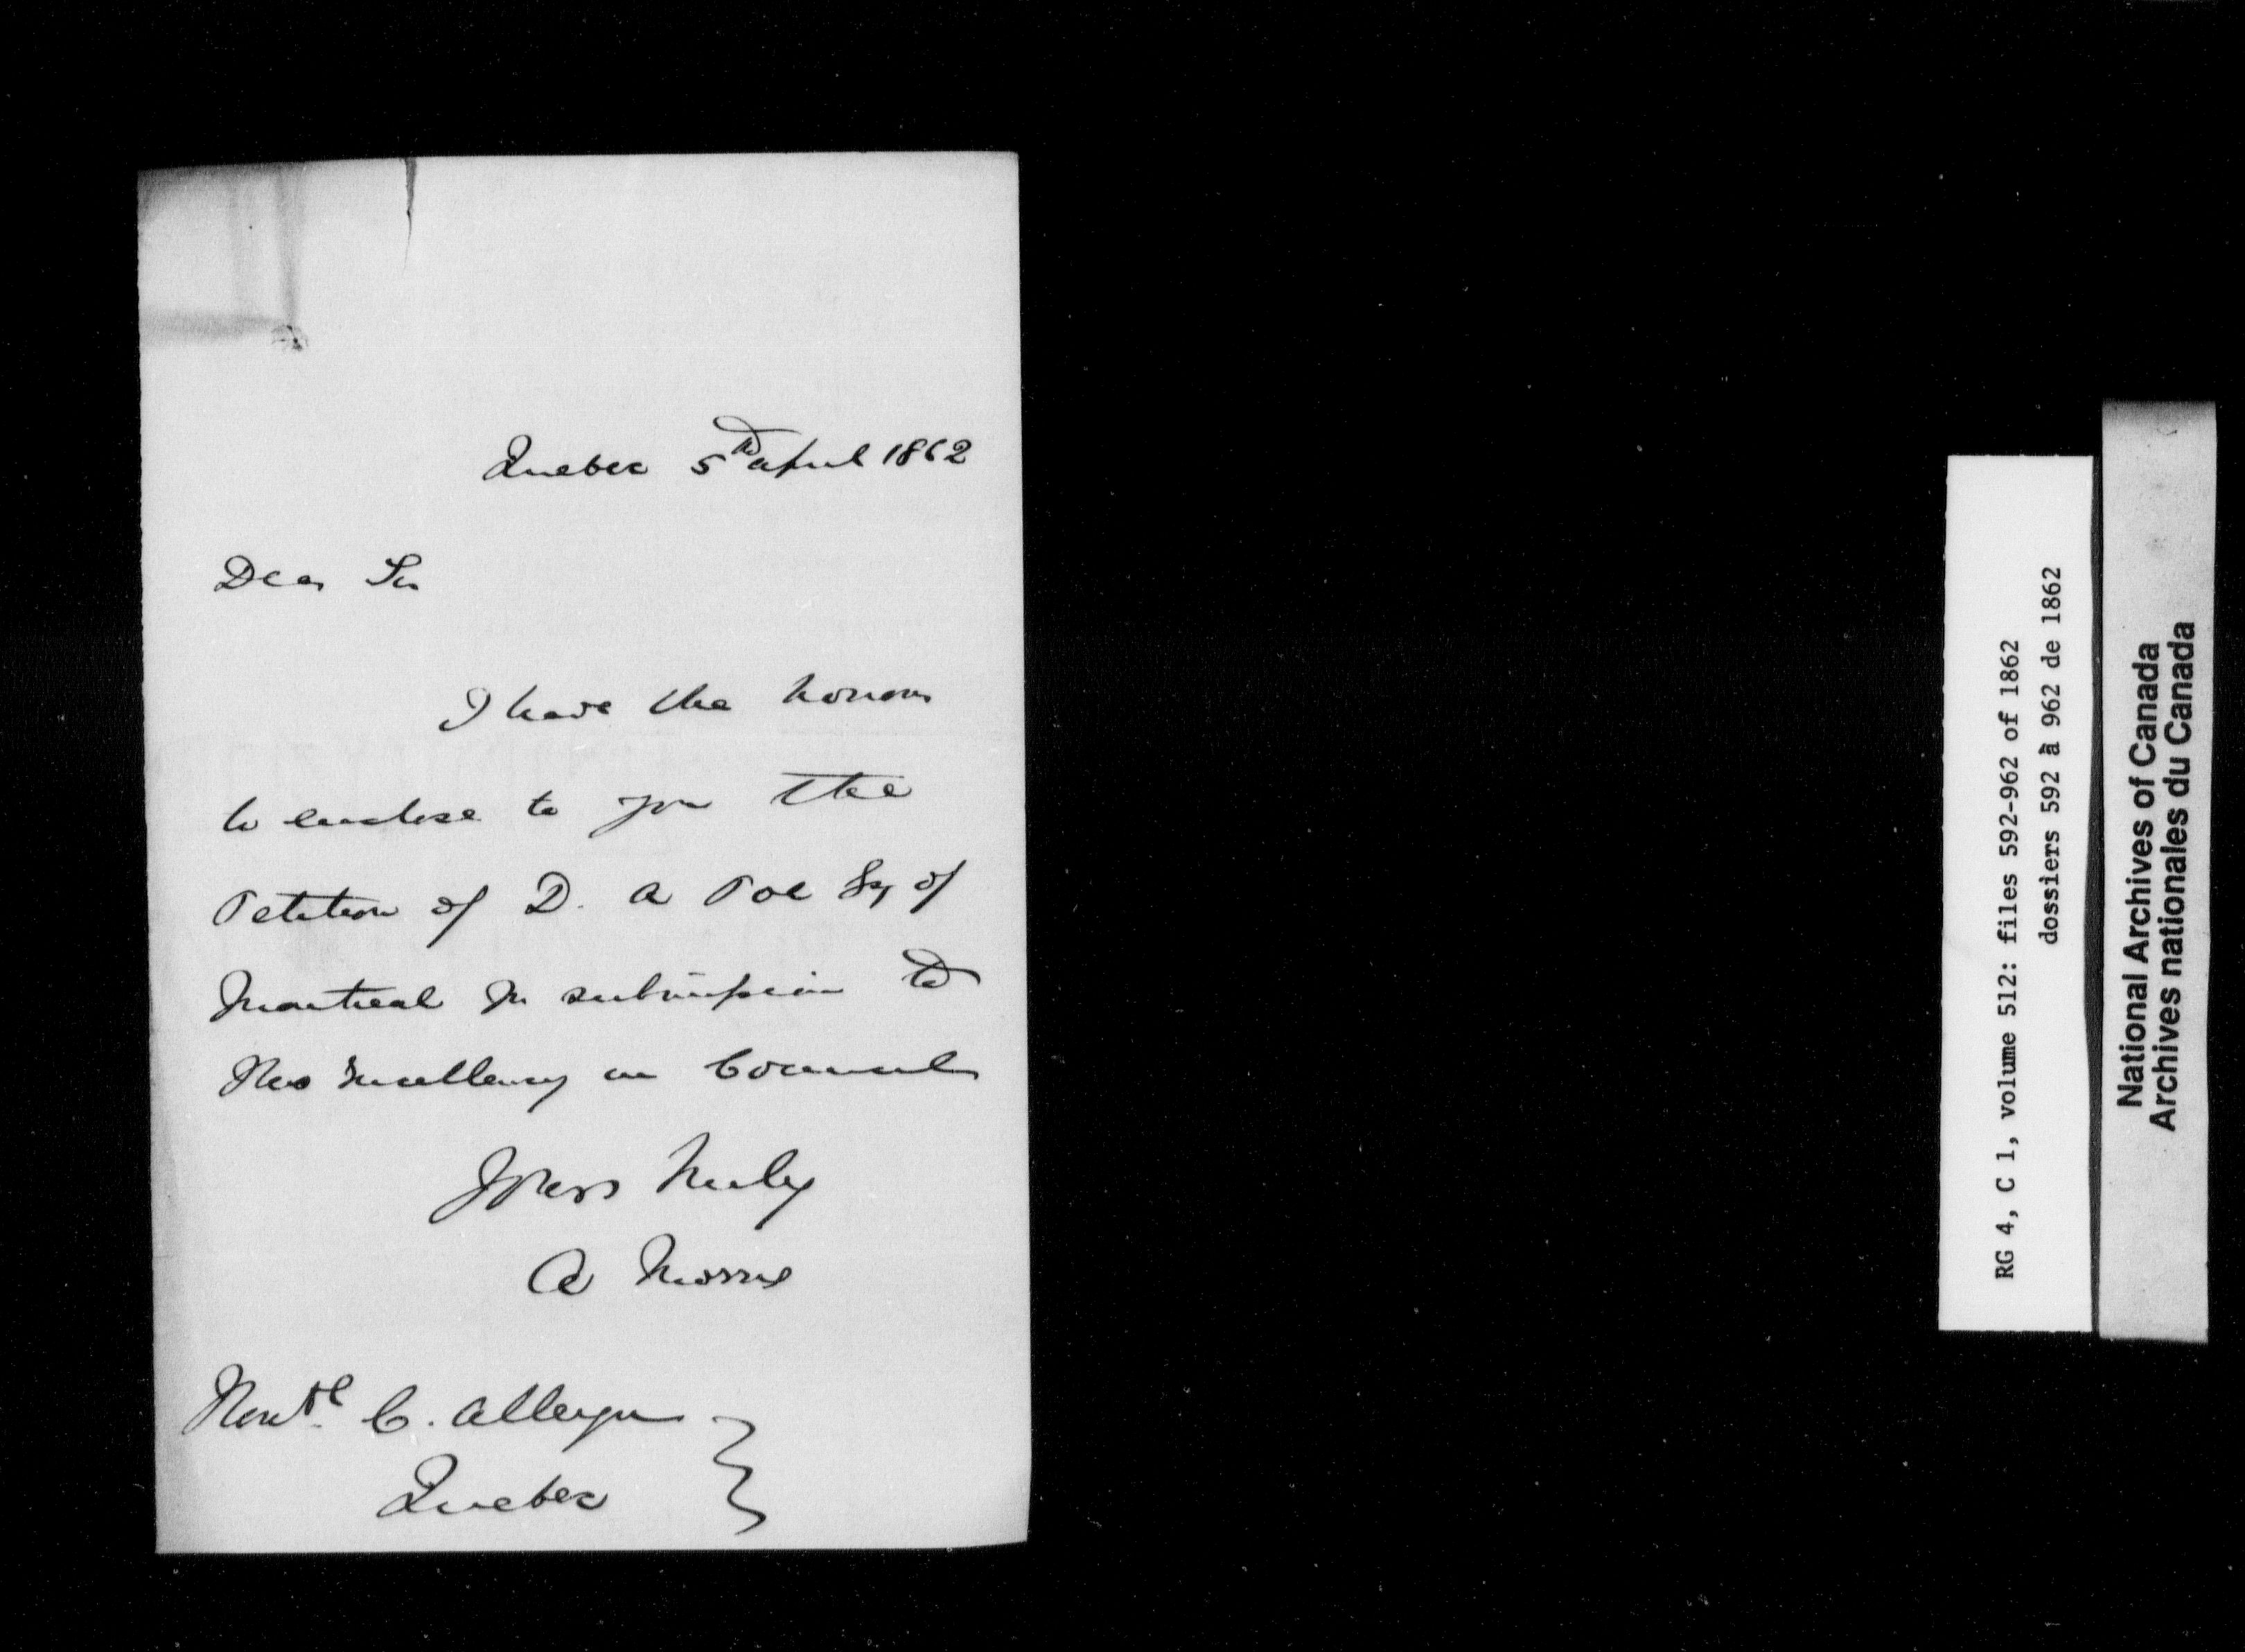 Quebec 5th April 1862
Dear Sir
I have the honour
to enclose to you the
Petition of D. A Poe Esq of
Montreal for submission to
His Excellency in Council
Yours truly
A Morris
Honble C. Alleyn
Quebec
RG 4, C 1, volume 512: files 592-962 of 1862
dossiers 592 à 962 de 1862
National Archives of Canada
Archives nationales du Canada